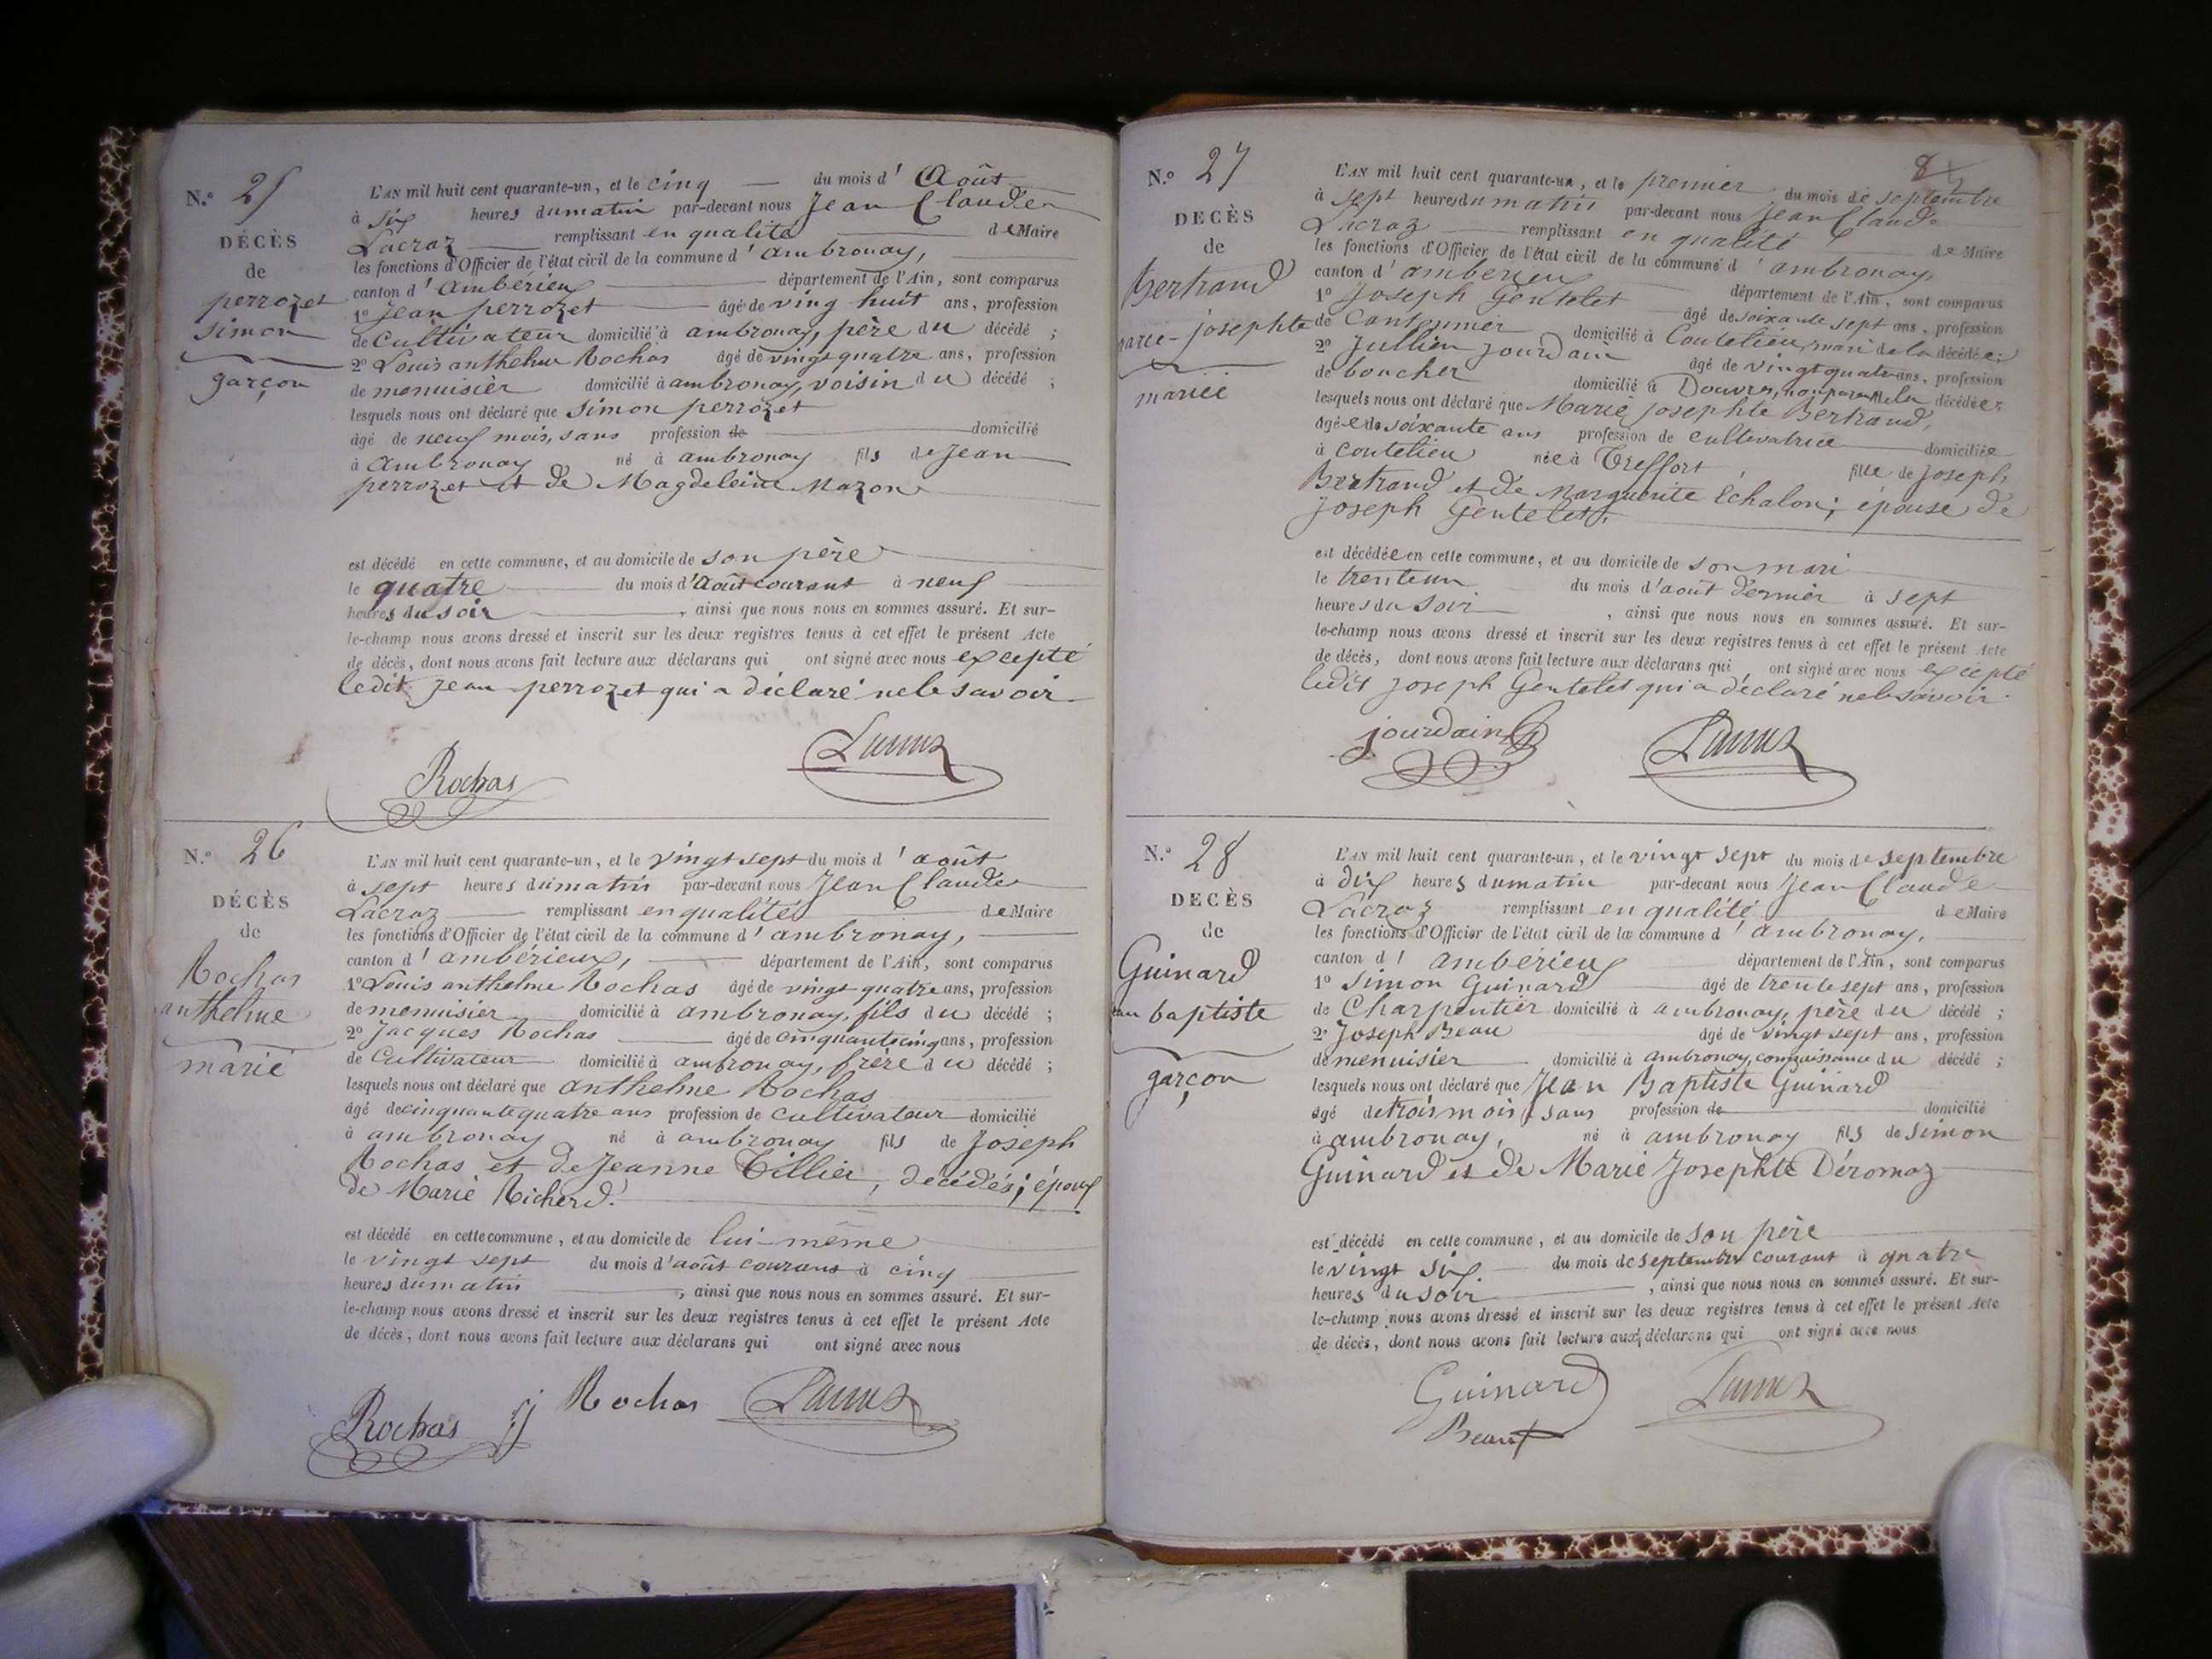 N.° 25
DÉCÈS
de
perrozet
simon
garçon
L'AN mil huit cent quarante-un, et le cinq du mois d' Août
à six heures du matin par-devant nous Jean Claude
Lacroz remplissant en qualité de Maire
les fonctions d'Officier de l'état civil de la commune d' ambronay,
canton d' Ambérieux département de l'Ain, sont comparus
1° Jean perrozet âgé de ving huit ans, profession
de Cultivateur domicilié à ambronay, père du décédé ;
2° Louis anthelme Rochas âgé de vingt quatre ans, profession
de menuisier domicilié à ambronay, voisin du décédé ;
lesquels nous ont déclaré que Simon perrozet
âgé de neuf mois, sans profession de domicilié
à Ambronay né à ambronay fils de Jean
perrozet et de Magdeleine Mazon
est décédé en cette commune, et au domicile de son père
le quatre du mois d'Août courant à neuf
heures du soir , ainsi que nous nous en sommes assuré. Et sur-
le-champ nous avons dressé et inscrit sur les deux registres tenus à cet effet le présent Acte
de décès, dont nous avons fait lecture aux déclarans qui ont signé avec nous excepté
ledit Jean perrozet qui a déclaré ne le savoir
Rochas Lacroz
N.° 26
DÉCÈS
de
Rochas
anthelme
marié
L'AN mil huit cent quarante-un, et le vingt sept du mois d' août
à sept heures du matin par-devant nous Jean Claude
Lacroz remplissant en qualité de Maire
les fonctions d'Officier de l'état civil de la commune d' ambronay,
canton d' ambérieux, département de l'Ain, sont comparus
1° Louis anthelme Rochas âgé de vingt quatre ans, profession
de menuisier domicilié à ambronay, fils du décédé ;
2° Jacques Rochas âgé de cinquante cinq ans, profession
de Cultivateur domicilié à ambronay, frère du décédé ;
lesquels nous ont déclaré que anthelme Rochas
âgé de cinquante quatre ans profession de cultivateur domicilié
à ambronay né à ambronay fils de Joseph
Rochas et de Jeanne Tillier, décédés ; époux
de Marie Richerd.
est décédé en cette commune, et au domicile de lui-même
le vingt sept du mois d'août courant à cinq
heures du matin , ainsi que nous nous en sommes assuré. Et sur-
le-champ nous avons dressé et inscrit sur les deux registres tenus à cet effet le présent Acte
de décès, dont nous avons fait lecture aux déclarans qui ont signé avec nous
Rochas Rochas Lacroz
N.° 27
DÉCÈS
de
Bertrand
marie-josephte
mariée
L'AN mil huit cent quarante-un, et le premier du mois de septembre
à sept heures du matin par-devant nous Jean Claude
Lacroz remplissant en qualité de Maire
les fonctions d'Officier de l'état civil de la commune d' ambronay,
canton d' amberieux département de l'Ain, sont comparus
1° Joseph Gentelet âgé de soixante sept ans, profession
de Cantonnier domicilié à Coutelieu, mari de la décédée ;
2° Jullien Jourdain âgé de vingt quatre ans, profession
de boucher domicilié à Douvres, non parent de la décédée ;
lesquels nous ont déclaré que Marie josephte Bertrand,
âgée de soixante ans profession de cultivatrice domiciliée
à coutelieu née à Treffort fille de Joseph
Bertrand et de Marguerite Échalon ; épouse de
Joseph Gentelet,
est décédée en cette commune, et au domicile de son mari
le trente un du mois d'août dernier à sept
heures du soir , ainsi que nous nous en sommes assuré. Et sur-
le-champ nous avons dressé et inscrit sur les deux registres tenus à cet effet le présent Acte
de décès, dont nous avons fait lecture aux déclarans qui ont signé avec nous excepté
ledit joseph Gentelet qui a déclaré ne le savoir.
jourdain Lacroz
N.° 28
DÉCÈS
de
Guinard
Jean baptiste
garçon
L'AN mil huit cent quarante-un, et le vingt sept du mois de septembre
à dix heures du matin par-devant nous Jean Claude
Lacroz remplissant en qualité de Maire
les fonctions d'Officier de l'état civil de la commune d' ambronay,
canton d' ambérieux département de l'Ain, sont comparus
1° Simon Guinard âgé de trente sept ans, profession
de Charpentier domicilié à ambronay, père du décédé ;
2° Joseph Beau âgé de vingt sept ans, profession
de menuisier domicilié à ambronay, connaissance du décédé ;
lesquels nous ont déclaré que Jean Baptiste Guinard
âgé de trois mois, sans profession de domicilié
à ambronay, né à ambronay fils de Simon
Guinard et de Marie Josephte Déromaz
est décédé en cette commune, et au domicile de son père
le vingt six. du mois de septembre courant à quatre
heures du soir , ainsi que nous nous en sommes assuré. Et sur-
le-champ nous avons dressé et inscrit sur les deux registres tenus à cet effet le présent Acte
de décès, dont nous avons fait lecture aux déclarans qui ont signé avec nous
Guinard Lacroz
Beau